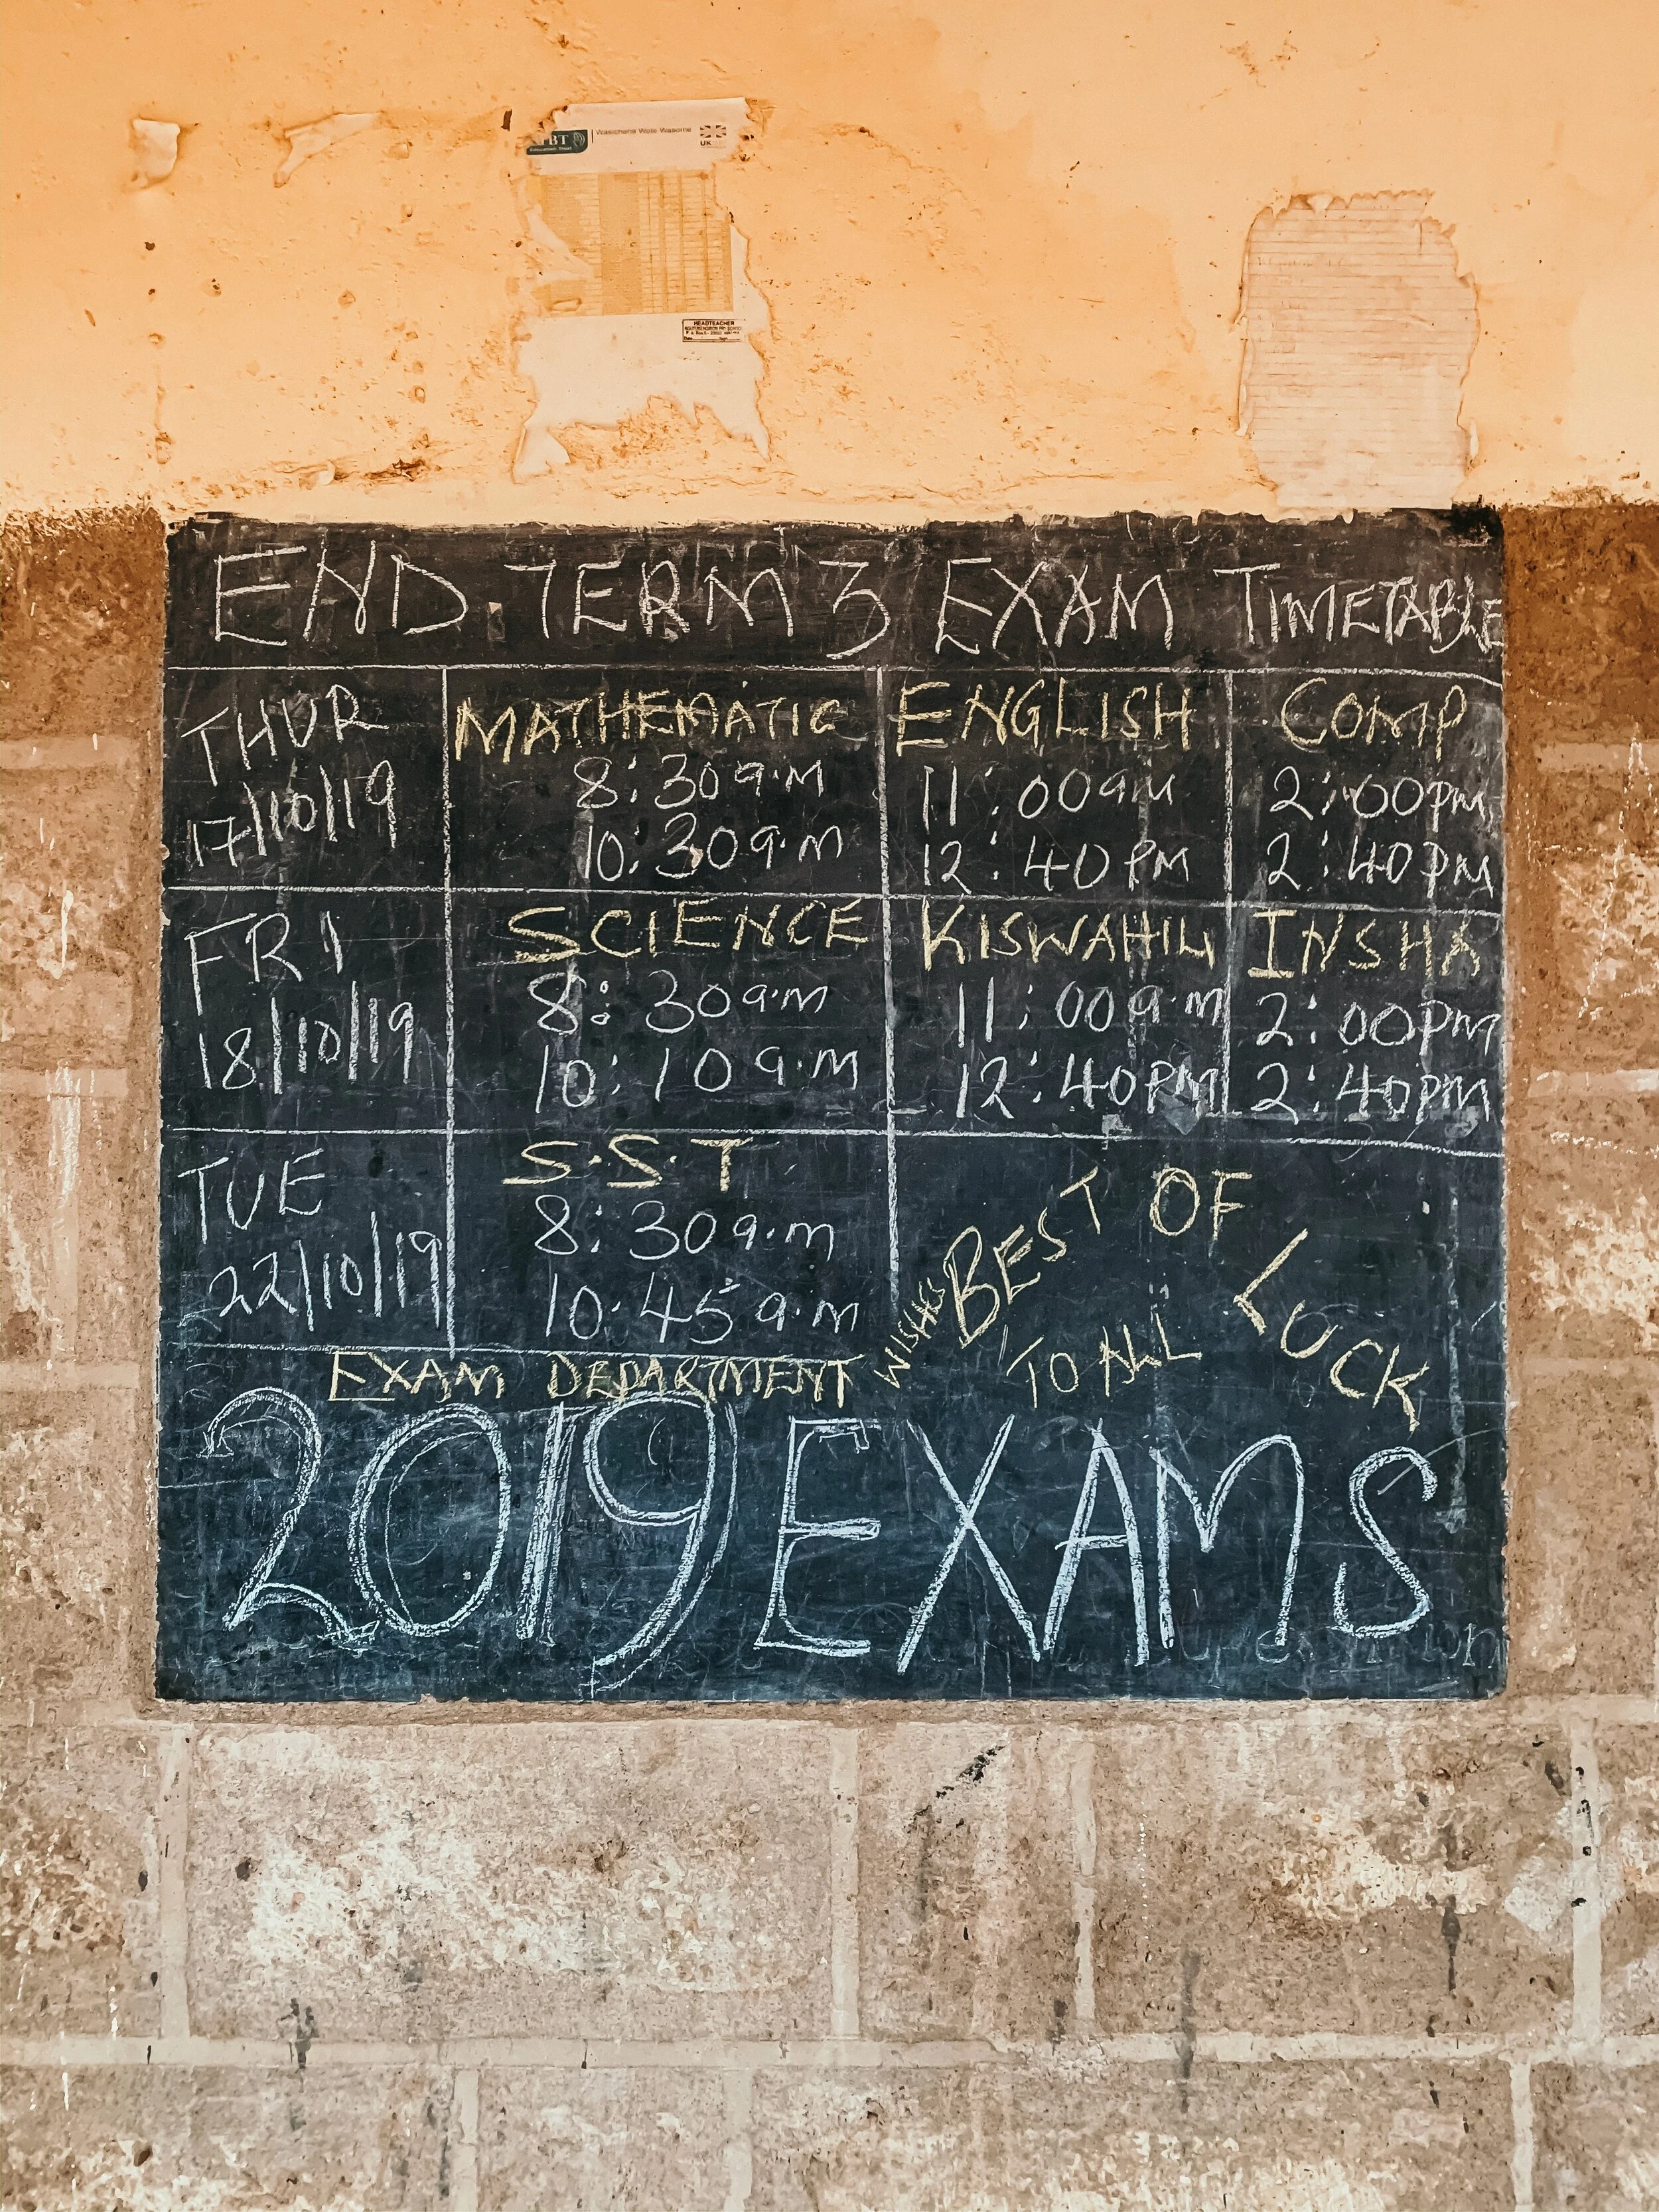 Wasichana Wote Wasome
UK
HEADTEACHER
END TERM 3 EXAM TIMETABLE
THUR
17/10/19
MATHEMATIC
8:30a.m
10:30a.m
ENGLISH
11:00am
12:40PM
COMP
2:00pm
2:40pm
FRI
18/10/19
SCIENCE
8:30a.m
10:10a.m
KISWAHILI
11:00a.m
12:40PM
INSHA
2:00pm
2:40pm
TUE
22/10/19
S.S.T
8:30a.m
10.45a.m
EXAM DEPARTMENT WISHES BEST OF LUCK
TO ALL
2019 EXAMS